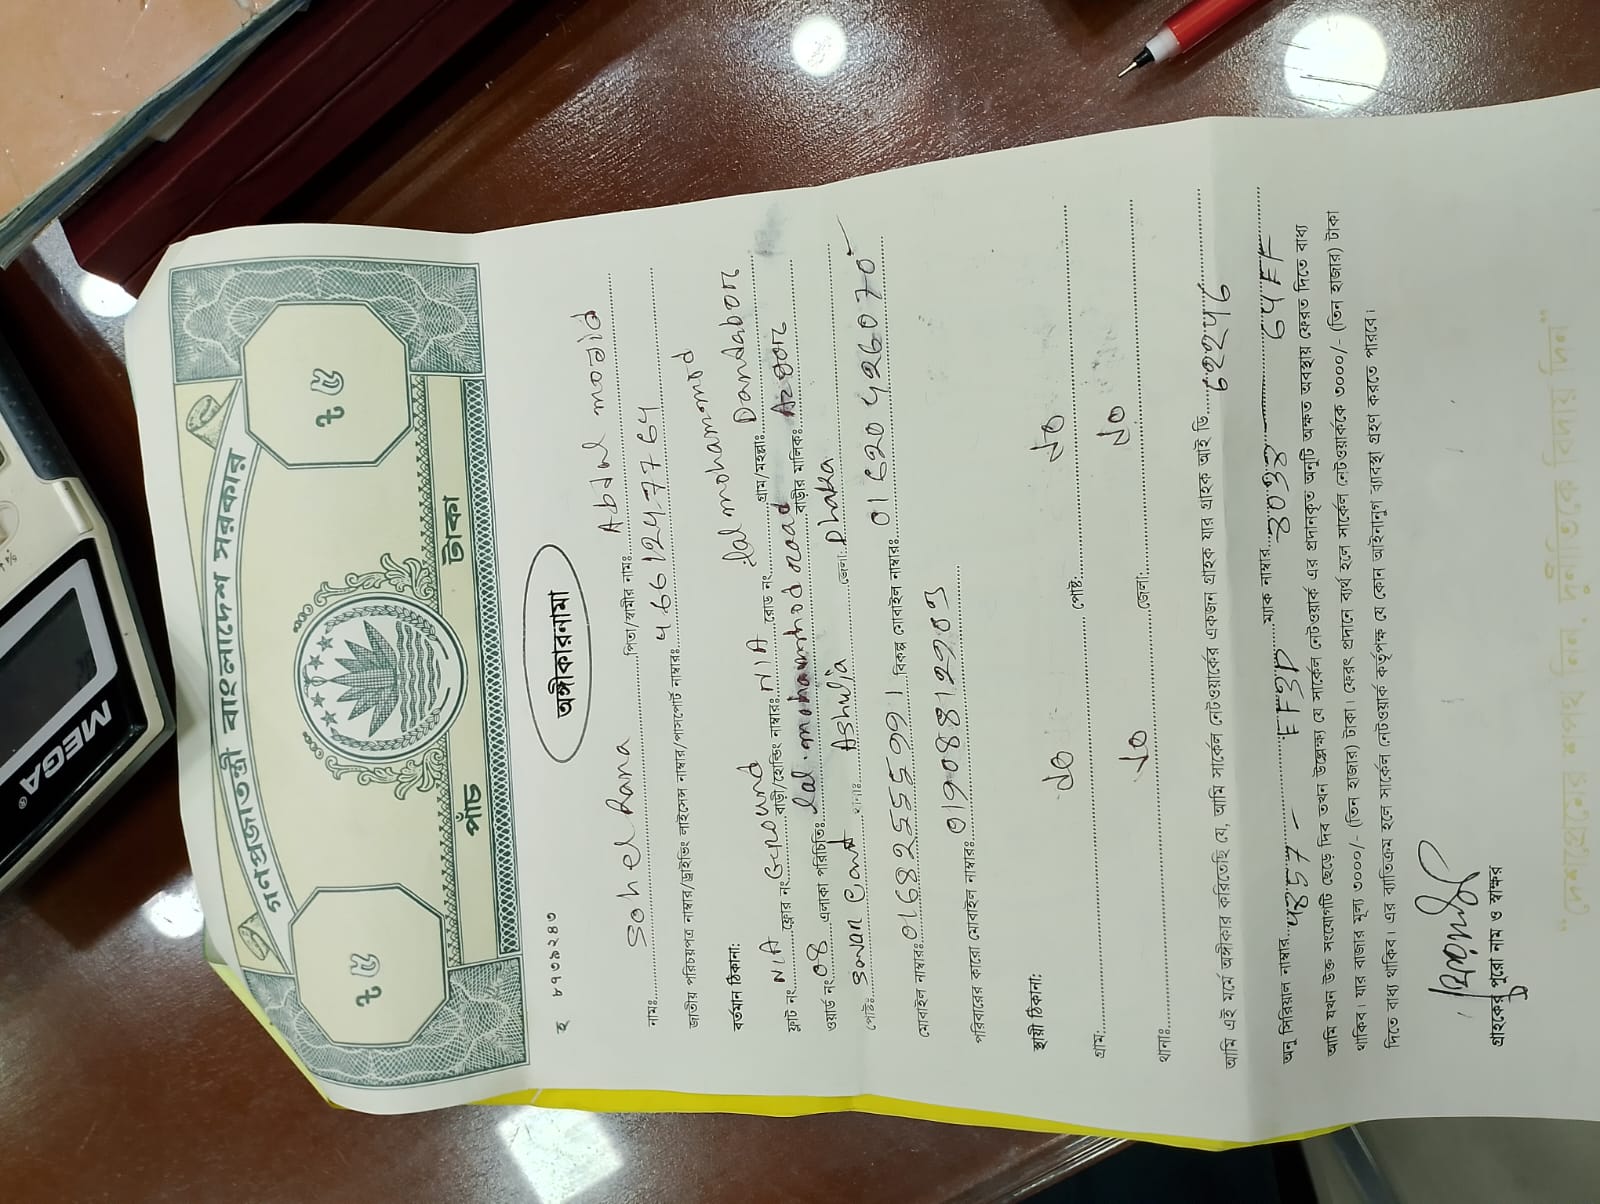 গণপ্রজাতন্ত্রী বাংলাদেশ সরকার
৫ ৳ ৫ ৳
পাঁচ টাকা
হ ৮৭৩৯২৪৩
অঙ্গীকারনামা
নামঃ Sohel Rana পিতা/স্বামীর নামঃ Abdul mozid
জাতীয় পরিচয়পত্র নাম্বার/ড্রাইভিং লাইসেন্স নাম্বার/পাসপোর্ট নাম্বারঃ
বর্তমান ঠিকানা:
ফ্লাট নং N/A ফ্লোর নং Ground বাড়ী/হোল্ডিং নাম্বারঃ N/A রোড নং lal mohammod গ্রাম/মহল্লাঃ Dandabor
ওয়ার্ড নং 08 এলাকা পরিচিতিঃ lal mohammod road বাড়ীর মালিকঃ
পোষ্টঃ থানাঃ Ashulia জেলাঃ Dhaka
মোবাইল নাম্বারঃ 01682555991 বিকল্প মোবাইল নাম্বারঃ 01620426070
পরিবারের কারো মোবাইল নাম্বারঃ 01908812903
স্থায়ী ঠিকানা:
গ্রাম: ঐ পোষ্ট: ঐ
থানাঃ ঐ জেলা: ঐ
আমি এই মর্মে অঙ্গীকার করিতেছি যে, আমি সার্কেল নেটওয়ার্কের একজন গ্রাহক যার গ্রাহক আই ডি
অনু সিরিয়াল নাম্বার ম্যাক নাম্বার
আমি যখন উক্ত সংযোগটি ছেড়ে দিব তখন উল্লেক্ষ্য যে সার্কেল নেটওয়ার্ক এর প্রদানকৃত অনুটি অক্ষত অবস্থায় ফেরত দিতে বাধ্য
থাকিব। যার বাজার মূল্য ৩০০০/- (তিন হাজার) টাকা। ফেরৎ প্রদানে ব্যর্থ হলে সার্কেল নেটওয়ার্ককে ৩০০০/- (তিন হাজার) টাকা
দিতে বাধ্য থাকিব। এর ব্যতিক্রম হলে সার্কেল নেটওয়ার্ক কর্তৃপক্ষ যে কোন আইনানুগ ব্যবস্থা গ্রহণ করতে পারবে।
গ্রাহকের পুরো নাম ও স্বাক্ষর
"দেশপ্রেমের শপথ নিন, দুর্নীতিকে বিদায় দিন"
MEGA